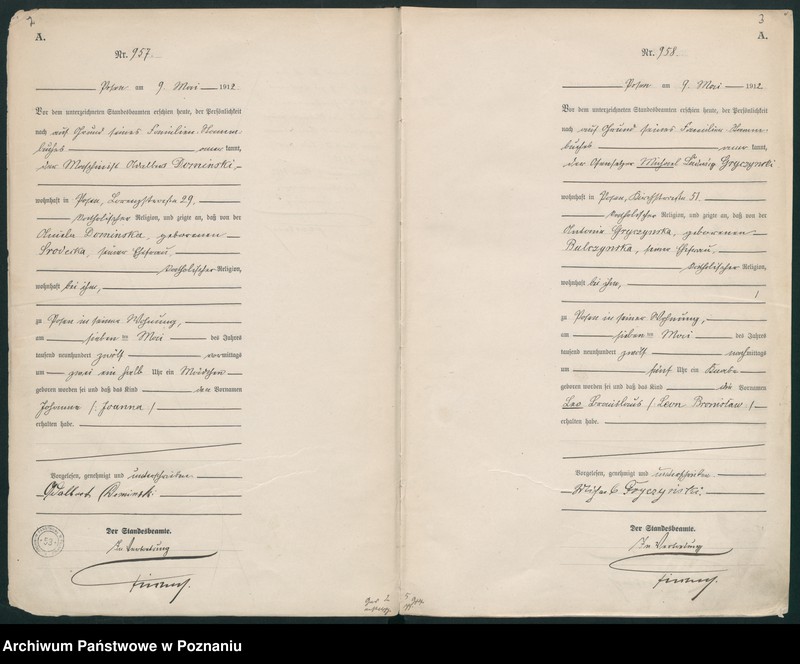 2
A.
Nr. 957.
Posen am 9. Mai 1912
Vor dem unterzeichneten Standesbeamten erschien heute, der Persönlichkeit
nach auf Grund seines Familien-Stamm-
buches kannt,
der Maschinist Dominski,
wohnhaft in Posen, 29,
katholischer Religion, und zeigte an, daß von der
Dominska, geborenen
Srodecka, seiner Ehefrau,
katholischer Religion,
wohnhaft bei ihm,
zu Posen in seiner Wohnung,
am sieben ten Mai des Jahres
tausend neunhundert zwölf vormittags
um zwei ein halb Uhr ein Mädchen
geboren worden sei und daß das Kind den Vornamen
Johanna /: Joanna /
erhalten habe.
Vorgelesen, genehmigt und unterschrieben
Dominski
Der Standesbeamte.
In Vertretung
53
3
A.
Nr. 958.
Posen am 9. Mai 1912
Vor dem unterzeichneten Standesbeamten erschien heute, der Persönlichkeit
nach auf Grund seines Familien Stamm-
buches kannt,
der Ofensetzer Michael Ludwig Gryczynski
wohnhaft in Posen, 51.
katholischer Religion, und zeigte an, daß von der
Antonie Gryczynska, geborenen
Bulczynska, seiner Ehefrau,
katholischer Religion,
wohnhaft bei ihm,
zu Posen in seiner Wohnung,
am sieben ten Mai des Jahres
tausend neunhundert zwölf nachmittags
um fünf Uhr ein Knabe
geboren worden sei und daß das Kind die Vornamen
Leo Bronislaus /: Leon Bronisław /
erhalten habe.
Vorgelesen, genehmigt und unterschrieben
Gryczyński.
Der Standesbeamte.
In Vertretung
Archiwum Państwowe w Poznaniu